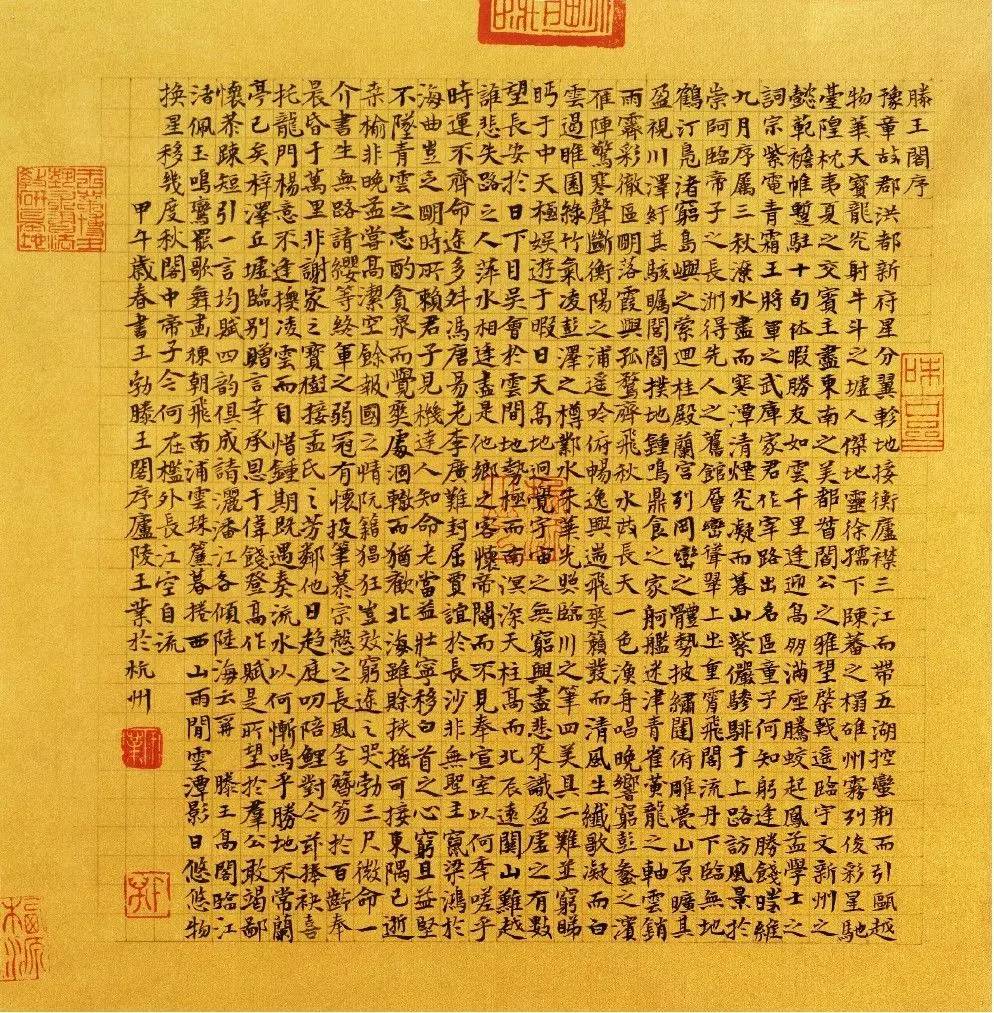 滕王閣序
豫章故郡洪都新府星分翼軫地接衡廬襟三江而帶五湖控蠻荆而引甌越
物華天寶龍光射牛斗之墟人傑地靈徐孺下陳蕃之榻雄州霧列俊彩星馳
臺隍枕夷夏之交賓主盡東南之美都督閻公之雅望棨戟遥臨宇文新州之
懿範襜帷暫駐十旬休暇勝友如雲千里逢迎高朋滿座騰蛟起鳳孟學士之
詞宗紫電青霜王將軍之武庫家君作宰路出名區童子何知躬逢勝餞時維
九月序属三秋潦水盡而寒潭清煙光凝而暮山紫儼驂騑于上路訪風景於
崇阿臨帝子之長洲得先人之舊館層巒聳翠上出重霄飛閣流丹下臨無地
鶴汀鳧渚窮島嶼之縈迴桂殿蘭宮列岡巒之體勢披繡闥俯雕甍山原曠其
盈視川澤紆其駭矚閭閻撲地鍾鳴鼎食之家舸艦迷津青雀黃龍之軸雲銷
雨霽彩徹區明落霞與孤鶩齊飛秋水共長天一色漁舟唱晚響窮彭蠡之濱
雁陣驚寒聲斷衡陽之浦遥吟俯暢逸興遄飛爽籟發而清風生纖歌凝而白
雲遏睢園綠竹氣凌彭澤之樽鄴水朱華光照臨川之筆四美具二難並窮睇
眄于中天極娛遊于暇日天高地迥覺宇宙之無窮興盡悲來識盈虛之有數
望長安於日下目吳會於雲間地勢極而南溟深天柱高而北辰遠關山難越
誰悲失路之人萍水相逢盡是他鄉之客懷帝閽而不見奉宣室以何年嗟乎
時運不齊命途多舛馮唐易老李廣難封屈賈誼於長沙非無聖主竄梁鴻於
海曲豈乏明時所賴君子見機達人知命老當益壯寧移白首之心窮且益堅
不墜青雲之志酌貪泉而覺爽處涸轍而猶歡北海雖賒扶搖可接東隅已逝
桑榆非晚孟嘗高潔空餘報國之情阮籍猖狂豈效窮途之哭勃三尺微命一
介書生無路請纓等終軍之弱冠有懷投筆慕宗愨之長風舍簪笏於百齡奉
晨昏于萬里非謝家之寶樹接孟氏之芳鄰他日趨庭叨陪鯉對今茲捧袂喜
托龍門楊意不逢撫凌雲而自惜鍾期既遇奏流水以何慚嗚乎勝地不常蘭
亭已矣梓澤丘墟臨別贈言幸承恩于偉餞登高作賦是所望於羣公敢竭鄙
懷恭疎短引一言均賦四韵俱成請灑潘江各傾陸海云爾 滕王高閣臨江
渚佩玉鳴鸞罷歌舞畫棟朝飛南浦雲珠簾暮捲西山雨閒雲潭影日悠悠物
换星移幾度秋閣中帝子今何在檻外長江空自流
甲午歲春書王勃滕王閣序廬陵王業於杭州